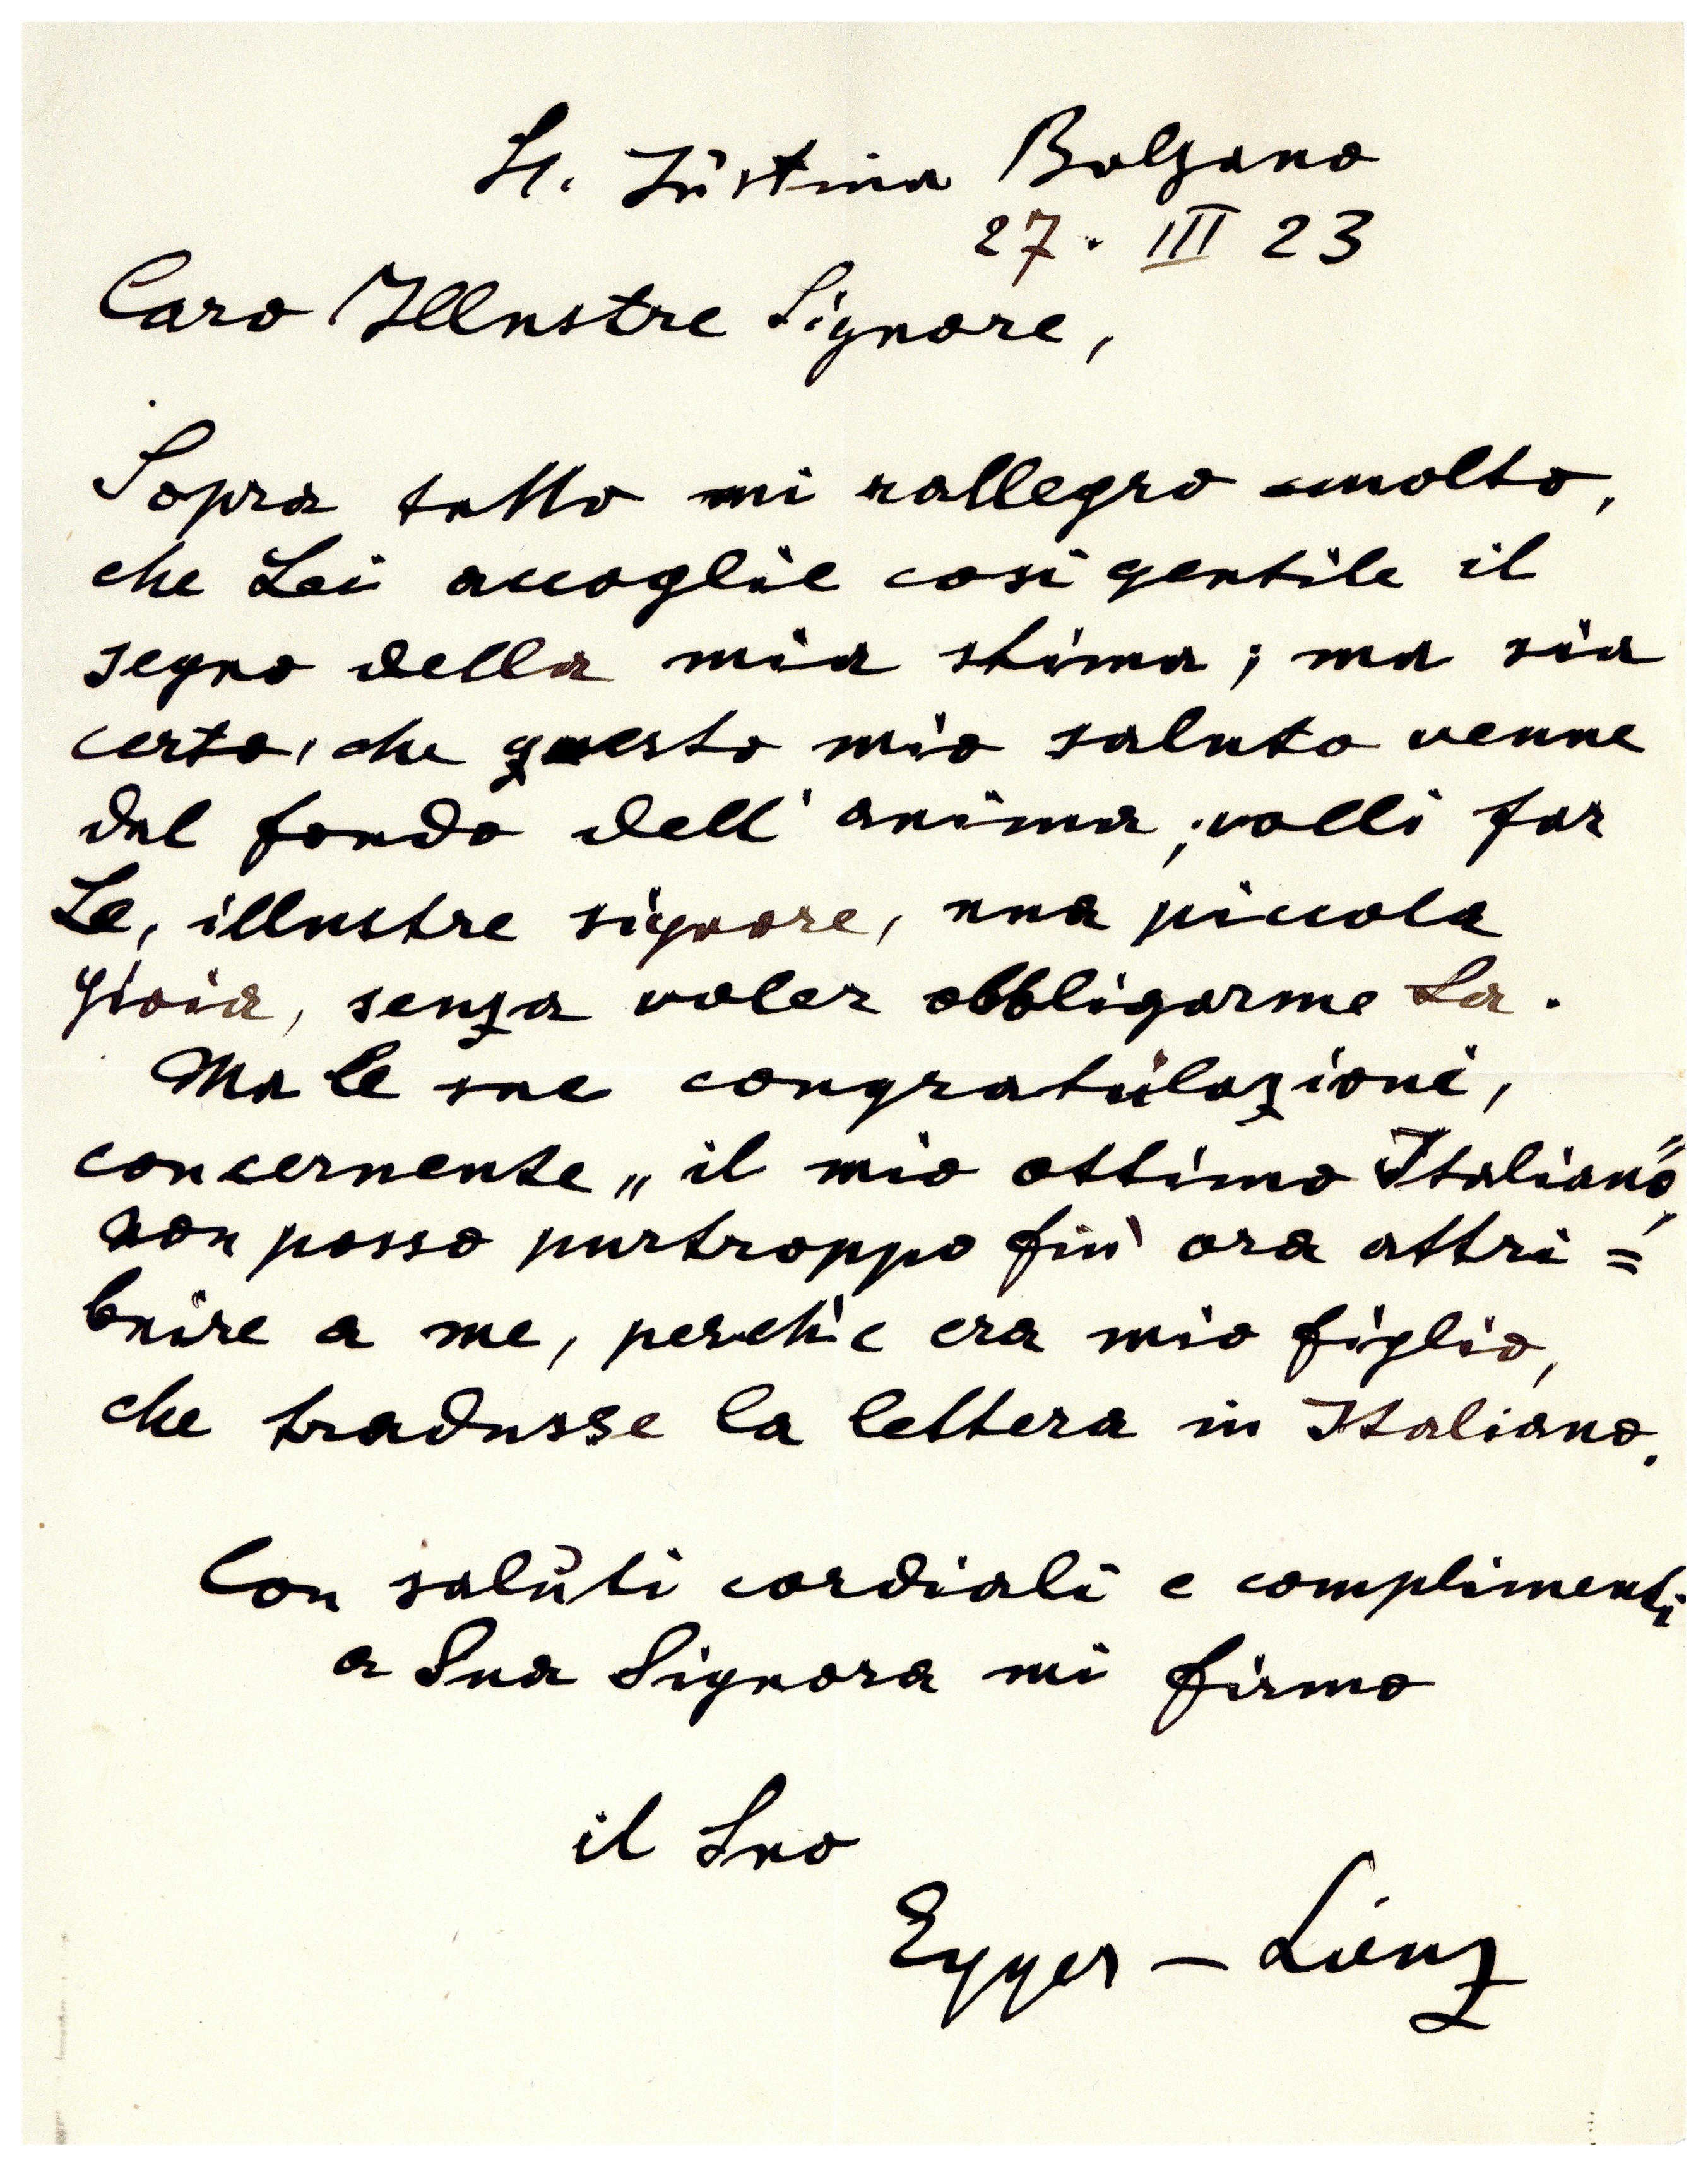 St. Justina Bolzano
27. III 23
Caro Illustre Signore,
Sopra tutto mi rallegro molto,
che Lei accoglie così gentile il
segno della mia stima; ma sia
certo, che questo mio saluto venne
dal fondo dell'anima; volli far
Le, illustre signore, una piccola
gioia, senza voler obbligarme La.
Ma le sue congratulazioni,
concernente „il mio ottimo Italiano",
non posso purtroppo fin' ora attri=
buire a me, perchè era mio figlio,
che tradusse la lettera in Italiano.
Con saluti cordiali e complimenti
a Sua Signora mi firmo
il Suo
Egger – Lienz